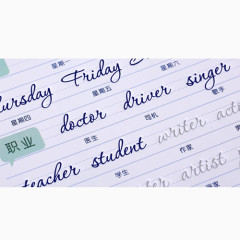 星期一 星期六
Thursday Friday
星期四 星期五
doctor driver singer
职业 医生 司机 歌手
teacher student writer
学生 作家
artist